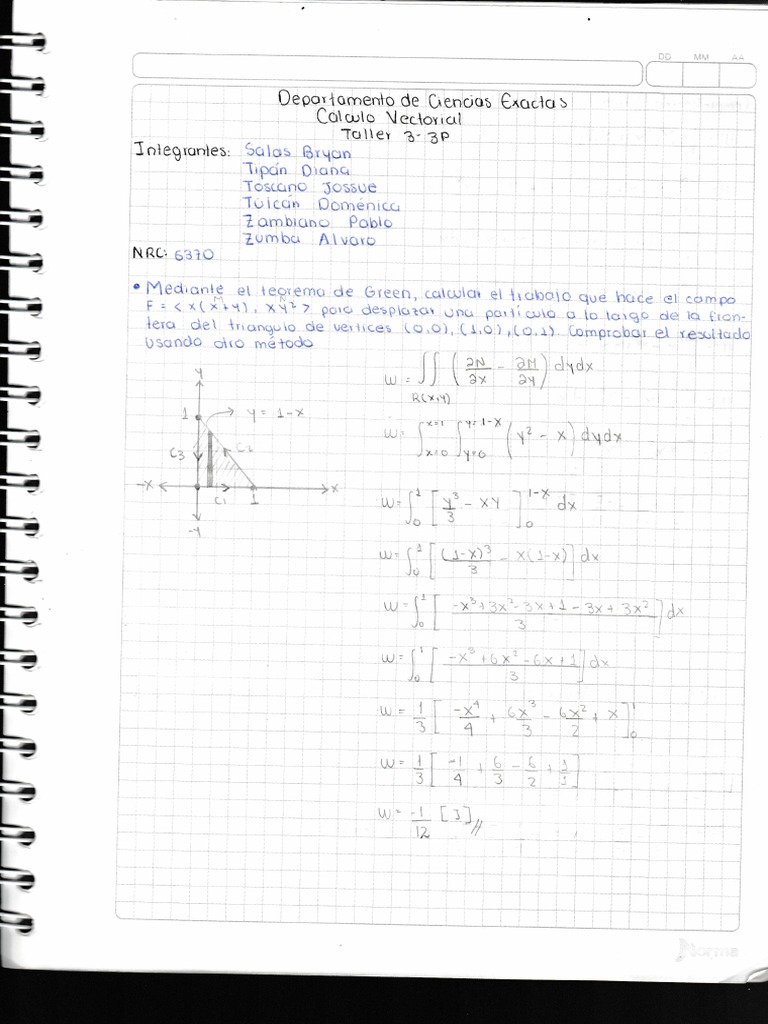 DD MM AA
Departamento de Ciencias Exactas
Calculo Vectorial
Taller 3-3P
Integrantes: Salas Bryan
Tipán Diana
Toscano Jossue
Tulcán Doménica
Zambrano Pablo
Zumba Alvaro
NRC: 6370
• Mediante el teorema de Green, calcular el trabajo que hace el campo
M N
F = < x(x+y), xy² > para desplazar una partícula a lo largo de la fron-
tera del triangulo de vertices (0,0),(1,0),(0,1). Comprobar el resultado
usando otro método
y
1 y = 1-x
C3 C2
-x C1 1 x
-y
W = ∬R(x,y) (∂N/∂x - ∂M/∂y) dydx
W = ∫x=0^x=1 ∫y=0^y=1-x (y² - x) dydx
W = ∫0^1 [y³/3 - xy]0^1-x dx
W = ∫0^1 [(1-x)³/3 - x(1-x)] dx
W = ∫0^1 [(-x³+3x²-3x+1-3x+3x²)/3] dx
W = ∫0^1 [(-x³+6x²-6x+1)/3] dx
W = 1/3 [-x⁴/4 + 6x³/3 - 6x²/2 + x]0^1
W = 1/3 [-1/4 + 6/3 - 6/2 + 1/1]
W = -1/12 [J]//
Norma